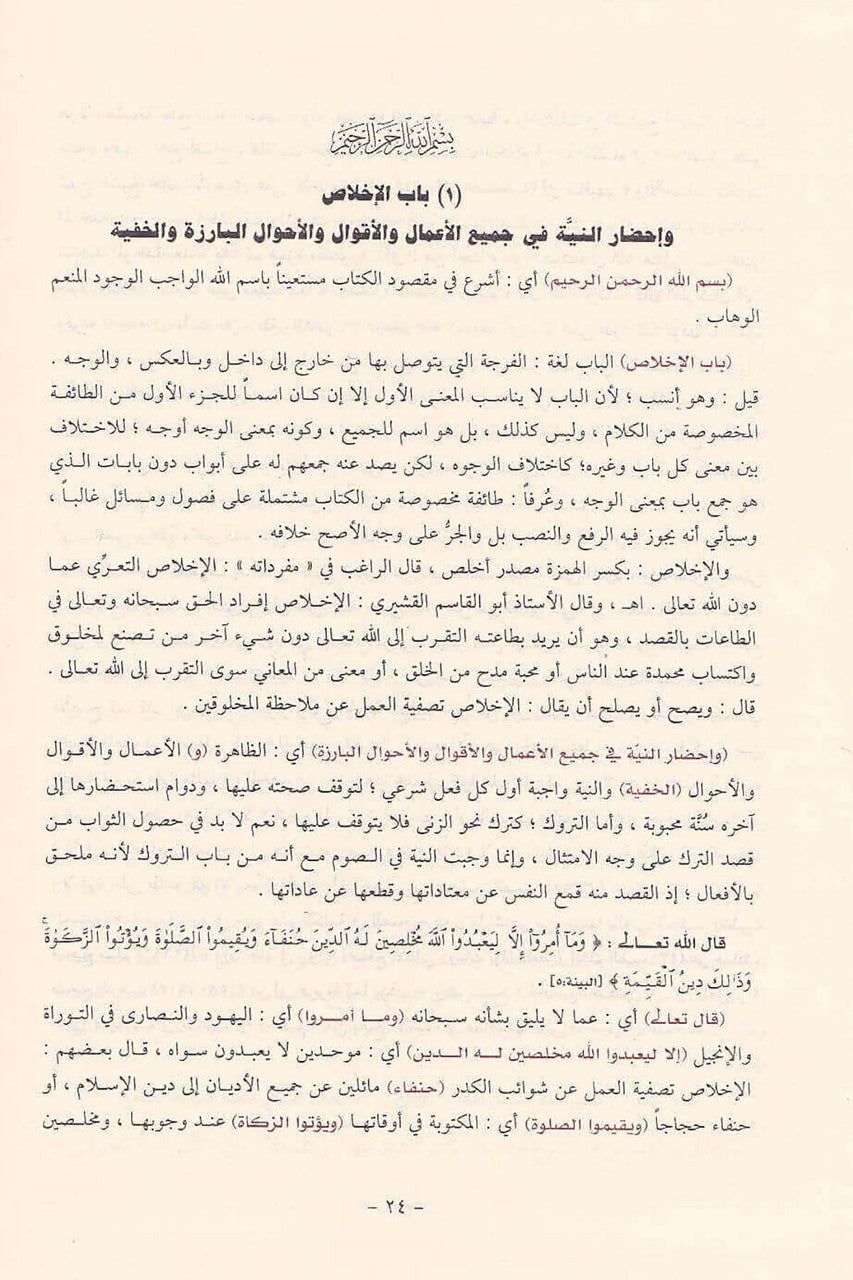 بسم الله الرحمن الرحيم
(١) باب الإخلاص
وإحضار النيَّة في جميع الأعمال والأقوال والأحوال البارزة والخفية
(بسم الله الرحمن الرحيم) أي : أشرع في مقصود الكتاب مستعيناً باسم الله الواجب الوجود المنعم
الوهاب .
(باب الإخلاص) الباب لغة : الفرجة التي يتوصل بها من خارج إلى داخل وبالعكس ، والوجه .
قيل : وهو أنسب ؛ لأن الباب لا يناسب المعنى الأول إلا إن كان اسماً للجزء الأول من الطائفة
المخصوصة من الكلام ، وليس كذلك ، بل هو اسم للجميع ، وكونه بمعنى الوجه أوجه ؛ للاختلاف
بين معنى كل باب وغيره؛ كاختلاف الوجوه ، لكن يصد عنه جمعهم له على أبواب دون بابات الذي
هو جمع باب بمعنى الوجه ، وعُرفاً : طائفة مخصوصة من الكتاب مشتملة على فصول ومسائل غالباً ،
وسيأتي أنه يجوز فيه الرفع والنصب بل والجرُّ على وجه الأصح خلافه .
والإخلاص : بكسر الهمزة مصدر أخلص ، قال الراغب في « مفرداته » : الإخلاص التعرِّي عما
دون الله تعالى . اهـ ، وقال الأستاذ أبو القاسم القشيري : الإخلاص إفراد الحق سبحانه وتعالى في
الطاعات بالقصد ، وهو أن يريد بطاعته التقرب إلى الله تعالى دون شيء آخر من تصنع لمخلوق
واكتساب محمدة عند الناس أو محبة مدح من الخلق ، أو معنى من المعاني سوى التقرب إلى الله تعالى .
قال : ويصح أو يصلح أن يقال : الإخلاص تصفية العمل عن ملاحظة المخلوقين .
(وإحضار النيّة في جميع الأعمال والأقوال والأحوال البارزة) أي : الظاهرة (و) الأعمال والأقوال
والأحوال (الخفية) والنية واجبة أول كل فعل شرعي ؛ لتوقف صحته عليها ، ودوام استحضارها إلى
آخره سُنَّة محبوبة ، وأما التروك ؛ كترك نحو الزنى فلا يتوقف عليها ، نعم لا بد في حصول الثواب من
قصد الترك على وجه الامتثال ، وإنما وجبت النية في الصوم مع أنه من باب التروك لأنه ملحق
بالأفعال ؛ إذ القصد منه قمع النفس عن معتاداتها وقطعها عن عاداتها .
قال الله تعالى : ﴿ وَمَآ أُمِرُوٓا۟ إِلَّا لِيَعْبُدُوا۟ ٱللَّهَ مُخْلِصِينَ لَهُ ٱلدِّينَ حُنَفَآءَ وَيُقِيمُوا۟ ٱلصَّلَوٰةَ وَيُؤْتُوا۟ ٱلزَّكَوٰةَ ۚ
وَذَٰلِكَ دِينُ ٱلْقَيِّمَةِ ﴾ [البينة:٥] .
(قال تعالى) أي : عما لا يليق بشأنه سبحانه (وما أمروا) أي : اليهود والنصارى في التوراة
والإنجيل (إلا ليعبدوا الله مخلصين له الدين) أي : موحدين لا يعبدون سواه ، قال بعضهم :
الإخلاص تصفية العمل عن شوائب الكدر (حنفاء) مائلين عن جميع الأديان إلى دين الإسلام ، أو
حنفاء حجاجاً (ويقيموا الصلوة) أي : المكتوبة في أوقاتها (ويؤتوا الزكاة) عند وجوبها ، ومخلصين
- ٢٤ -